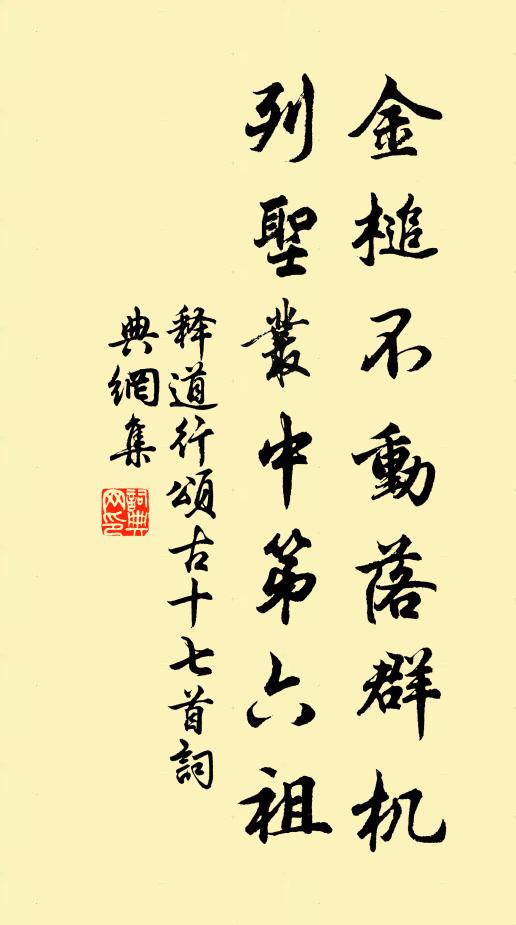 金槌不動落群机
列聖叢中第六祖
释道行頌古十七首詞
典網集
詞典网印